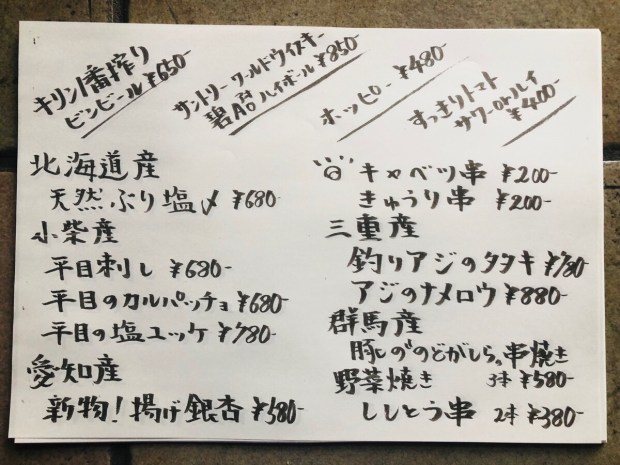 キリン一番搾り
ビンビール ¥650-
サントリーワールドウイスキー
碧Ao ハイボール ¥850-
ホッピー ¥480-
すっきりトマト
サワーorハイ
¥400-
北海道産
天然ぶり塩〆 ¥680-
小柴産
平目刺し ¥680-
平目のカルパッチョ ¥680-
平目の塩ユッケ ¥780-
愛知産
新物!揚げ銀杏 ¥580-
キャベツ串 ¥200-
きゅうり串 ¥200-
三重産
釣りアジのタタキ ¥780-
アジのナメロウ ¥880-
群馬産
豚しの"のどがしら"串焼き
野菜焼き 3本 ¥580-
ししとう串 2本 ¥380-